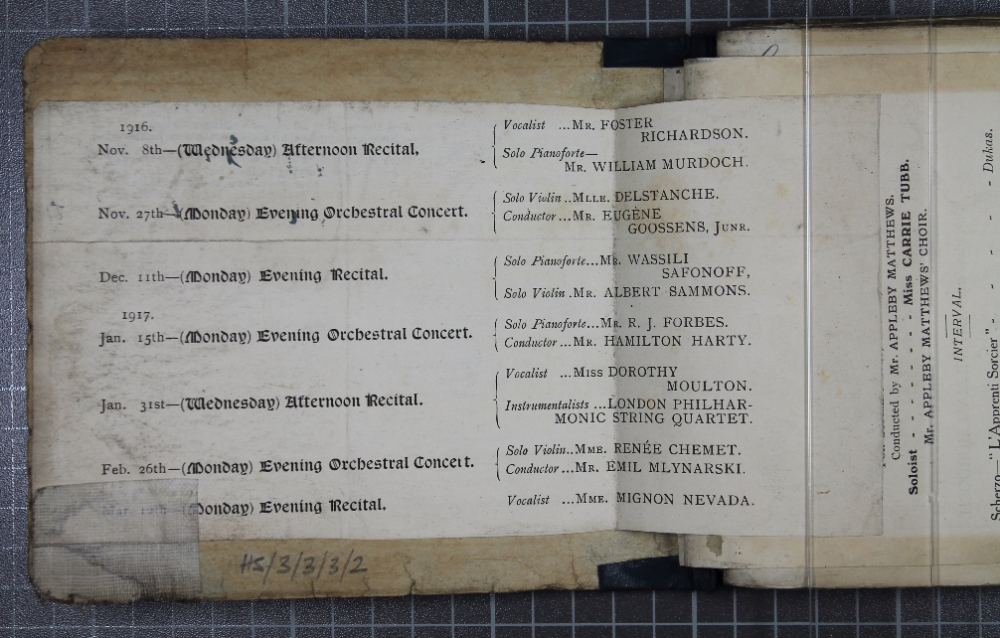 1916.
Nov. 8th—(Wednesday) Afternoon Recital.
Vocalist ...MR. FOSTER
RICHARDSON.
Solo Pianoforte—
MR. WILLIAM MURDOCH.
Nov. 27th—(Monday) Evening Orchestral Concert.
Solo Violin..MLLE. DELSTANCHE.
Conductor...MR. EUGÈNE
GOOSSENS, JUNR.
Dec. 11th—(Monday) Evening Recital.
Solo Pianoforte...MR. WASSILI
SAFONOFF,
Solo Violin.MR. ALBERT SAMMONS.
1917.
Jan. 15th—(Monday) Evening Orchestral Concert.
Solo Pianoforte...MR. R. J. FORBES.
Conductor...MR. HAMILTON HARTY.
Jan. 31st—(Wednesday) Afternoon Recital.
Vocalist ...MISS DOROTHY
MOULTON.
Instrumentalists ...LONDON PHILHAR-
MONIC STRING QUARTET.
Feb. 26th—(Monday) Evening Orchestral Concert.
Solo Violin..MME. RENÉE CHEMET.
Conductor...MR. EMIL MLYNARSKI.
Mar. 12th—(Monday) Evening Recital.
Vocalist ...MME. MIGNON NEVADA.
HS/3/3/3/2
Conducted by Mr. APPLEBY MATTHEWS.
Soloist - - - - - - Miss CARRIE TUBB.
Mr. APPLEBY MATTHEWS' CHOIR.
INTERVAL.
Scherzo—"L'Apprenti Sorcier" - - - - Dukas.